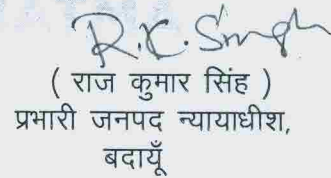 R.K. Singh
( राज कुमार सिंह )
प्रभारी जनपद न्यायाधीश,
बदायूँ